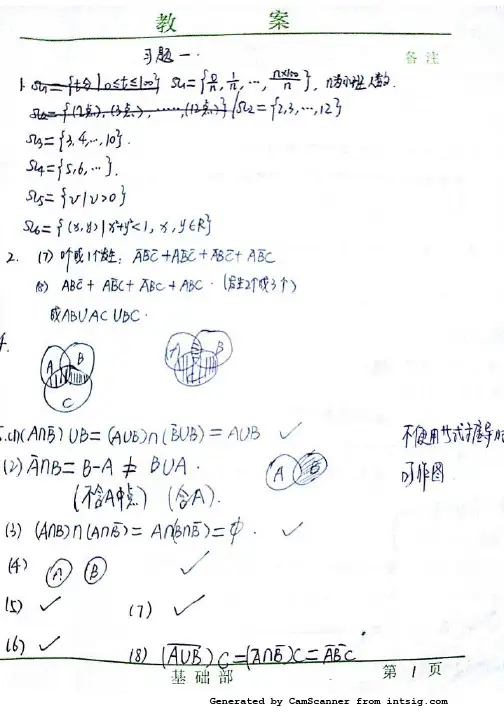 教 案
习题一.
备注
1. Ω1={t分|0≤t≤100} Ω1={0/n, 1/n, ..., n×100/n}, n为小班人数.
Ω2={(2点),(3点),......,(12点)} Ω2={2,3,...,12}
Ω3={3,4,...,10}.
Ω4={5,6,...}.
Ω5={v|v>0}
Ω6={(x,y)|x²+y²<1, x,y∈R}
2. (7) 0个或1个发生: A̅B̅C̅+AB̅C̅+A̅BC̅+A̅B̅C
(8) ABC̅+AB̅C+A̅BC+ABC. (发生2个或3个)
或AB∪AC∪BC.
4.
A B A B
C C
5.(1)(A∩B̅)∪B=(A∪B)∩(B̅∪B)=A∪B ✓
不使用公式推导时
(2) A̅∩B=B-A≠B∪A. A B
可作图
(不含A中点) (含A).
(3) (A∩B)∩(A∩B̅)=A∩(B∩B̅)=Φ. ✓
(4) A B ✓
(5) ✓ (7) ✓
(6) ✓ (8) (A̅∪̅B̅)C=(A̅∩B̅)C=A̅B̅C
基础部 第 1 页
Generated by CamScanner from intsig.com